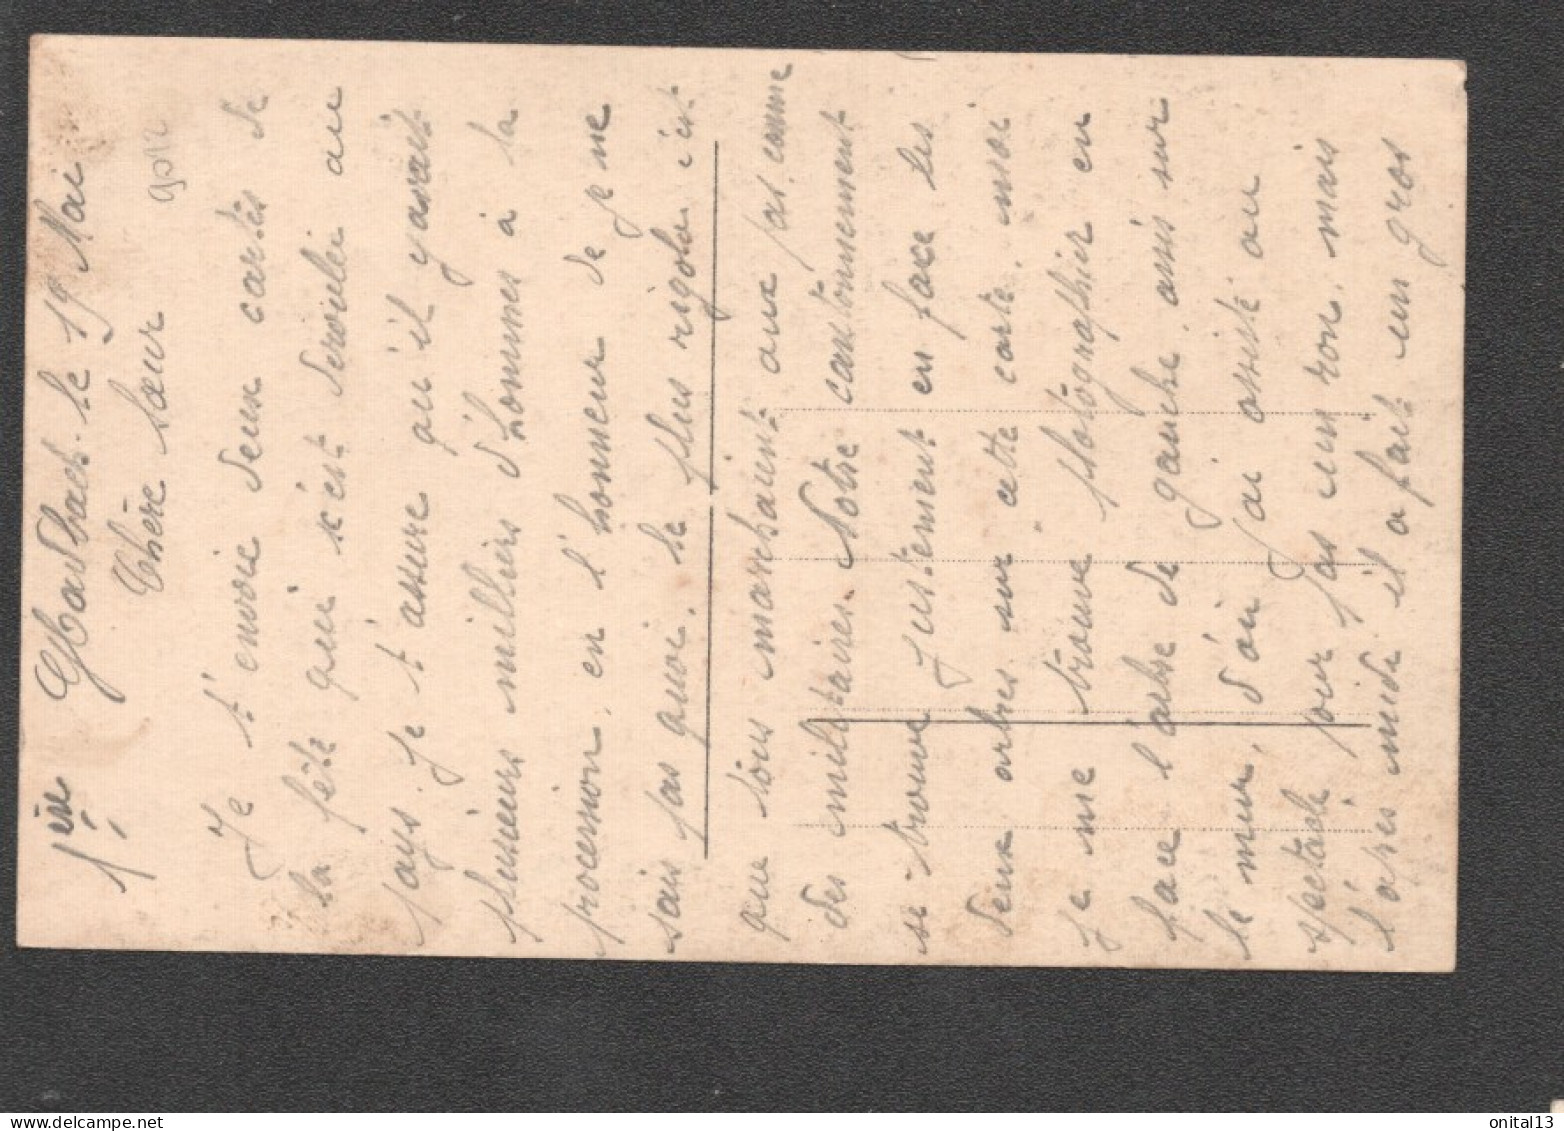 1ère Gladbach. le 19 Mai
Chère Sœur
Je t'envoie deux cartes de
la fête qui s'est déroulée au
pays. Je t'assure qu'il y avait
plusieurs milliers d'hommes à la
procession, en l'honneur de je ne
sais pas quoi. Le plus rigolo c'est
que tous marchaient au pas comme
des militaires. Notre cantonnement
se trouve justement en face les
deux arbres sur cette carte. moi
je me trouve photographier en
face l'arbre de gauche assis sur
le mur, d'où j'ai assisté au
spectacle pour pas un ron. mais
l'après midi il a fait un gros
onital13